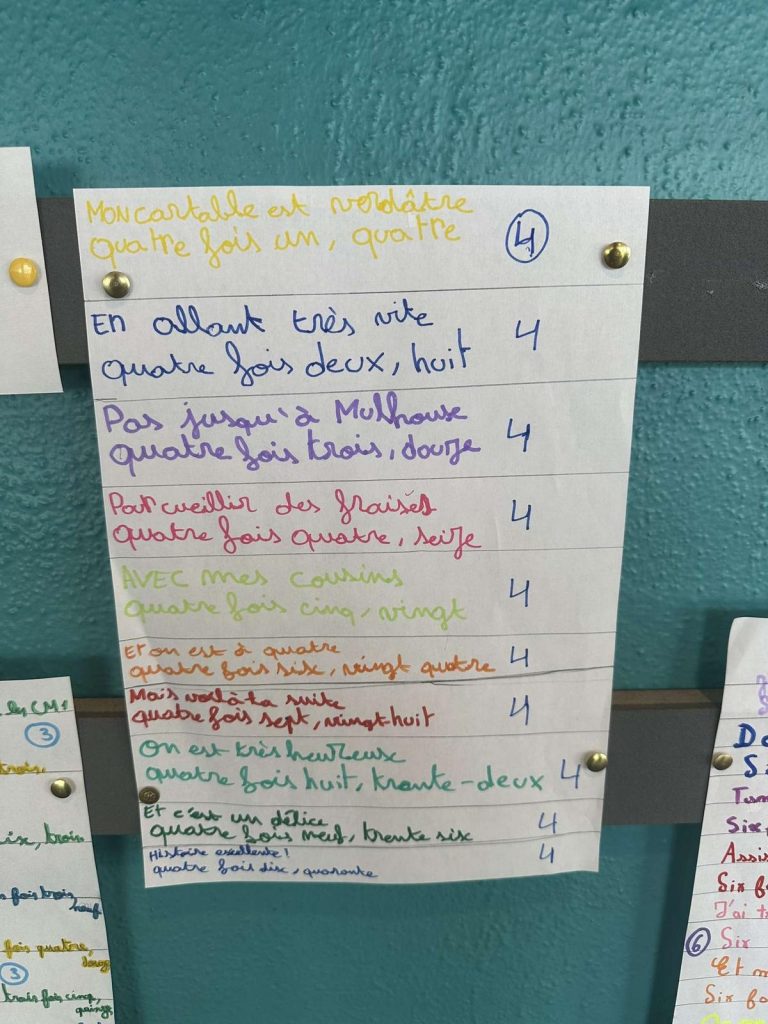 Mon cartable est verdâtre
quatre fois un, quatre
4
En allant très vite
quatre fois deux, huit
4
Pas jusqu'à Mulhouse
quatre fois trois, douze
4
Pour cueillir des fraises
quatre fois quatre, seize
4
AVEC mes cousins
quatre fois cinq, vingt
4
Et on est à quatre
quatre fois six, vingt quatre
4
Mais voilà la suite
quatre fois sept, vingt huit
4
On est très heureux
quatre fois huit, trente-deux
4
Et c'est un délice
quatre fois neuf, trente six
4
Histoire excellente!
quatre fois dix, quarante
4
les CM1
3
trois,
ix, trois
fois trois,
neuf
fois quatre,
douze
3
trois fois cinq,
quinze
Six,
Assis
Six fo
J'ai t
6 Six
Et m
Six fo